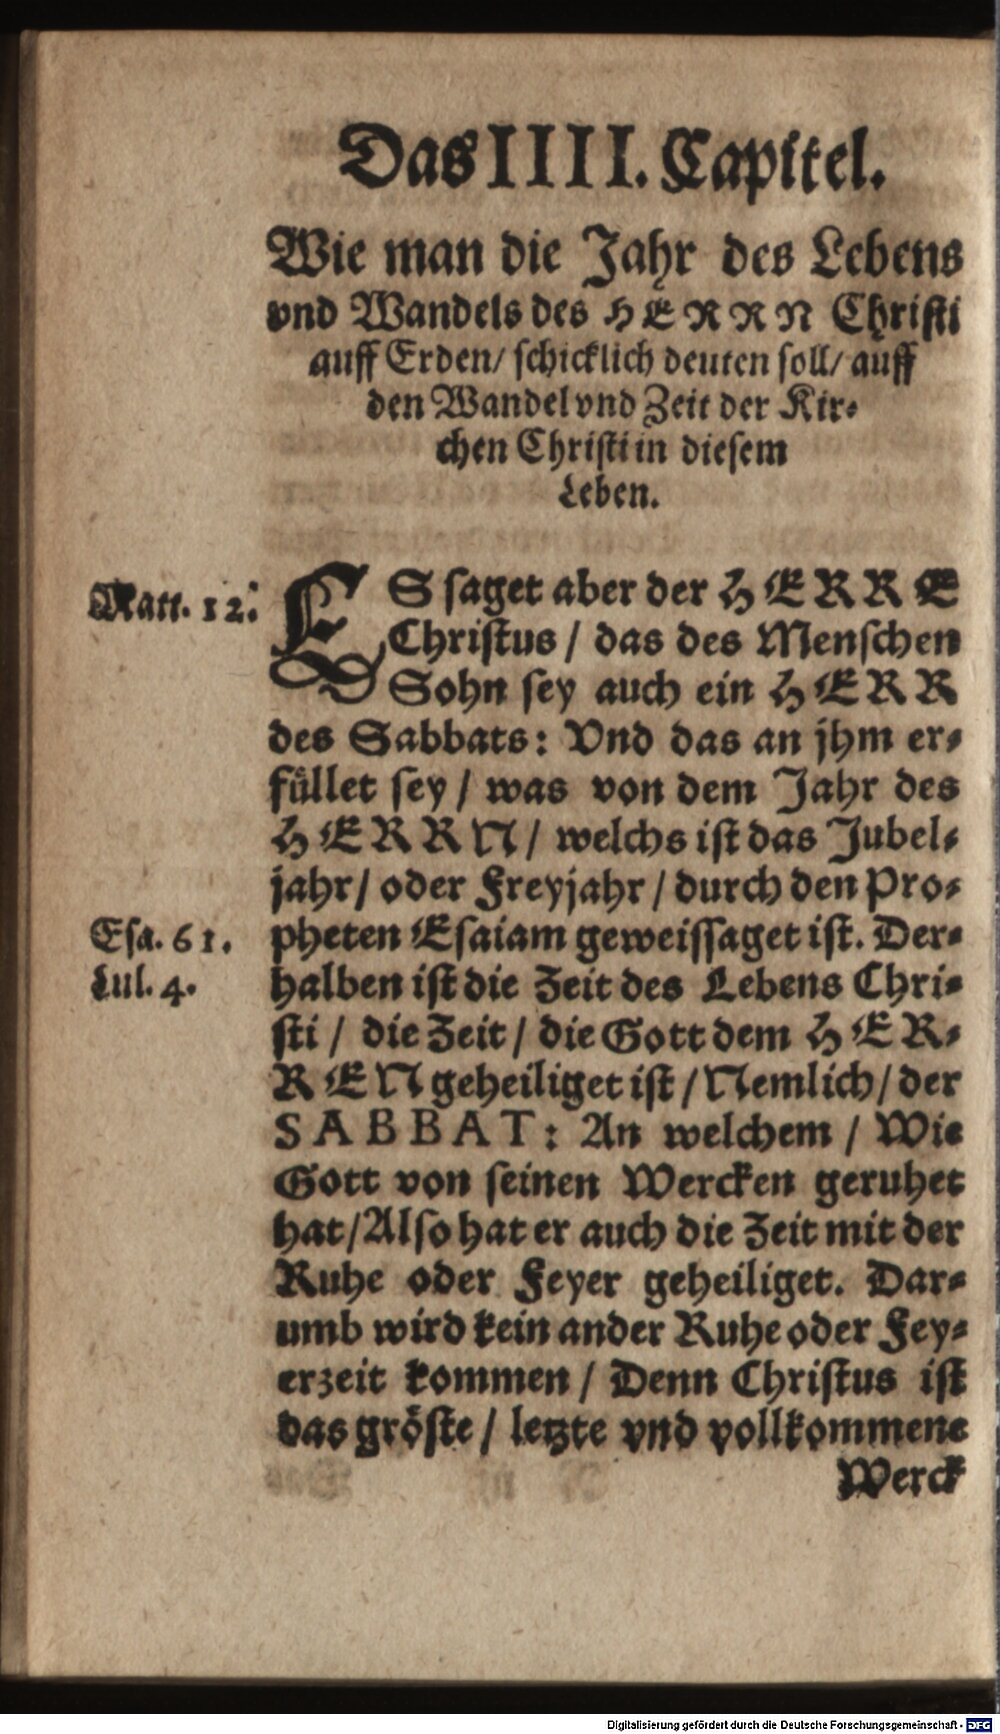 Das IIII. Capitel.
Wie man die Jahr des Lebens
vnd Wandels des HERRN Christi
auff Erden/ schicklich deuten soll/ auff
den Wandel vnd Zeit der Kir-
chen Christi in diesem
Leben.
Matt. 12.
ES saget aber der HERRE
Christus / das des Menschen
Sohn sey auch ein HERR
des Sabbats: Vnd das an jhm er-
füllet sey / was von dem Jahr des
HERRN / welchs ist das Jubel-
jahr / oder Freyjahr / durch den Pro-
Esa. 61.
pheten Esaiam geweissaget ist. Der-
Luc. 4.
halben ist die Zeit des Lebens Chri-
sti / die Zeit / die Gott dem HER-
REN geheiliget ist / Nemlich / der
SABBAT: An welchem / Wie
Gott von seinen Wercken geruhet
hat / Also hat er auch die Zeit mit der
Ruhe oder Feyer geheiliget. Dar-
umb wird kein ander Ruhe oder Fey-
erzeit kommen / Denn Christus ist
das gröste / letzte vnd vollkommene
Werck
Digitalisierung gefördert durch die Deutsche Forschungsgemeinschaft - DFG